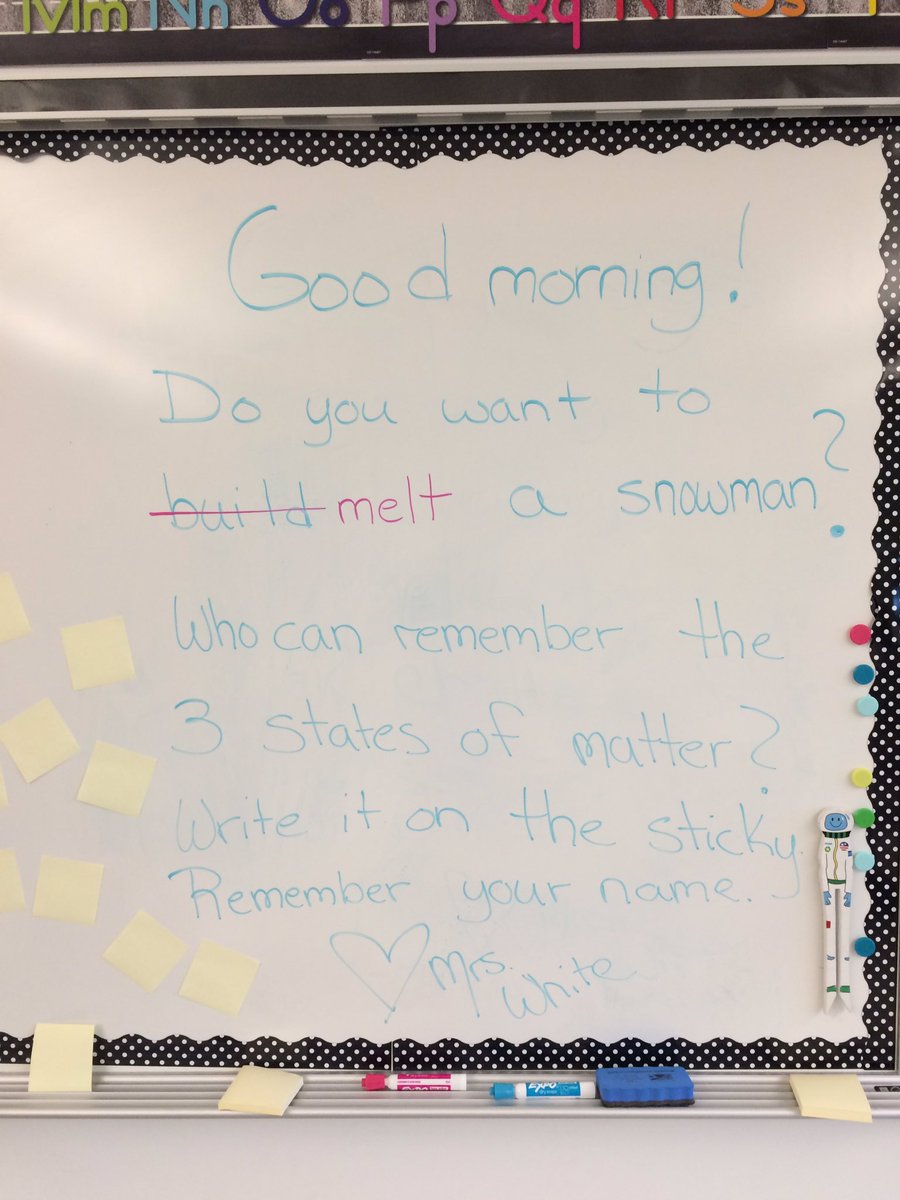 Mm Nn Oo Pp Qq Rr Ss
Good morning!
Do you want to
build melt a snowman?
Who can remember the
3 states of matter?
Write it on the sticky.
Remember your name.
Mrs. Write
EXPO
EXPO